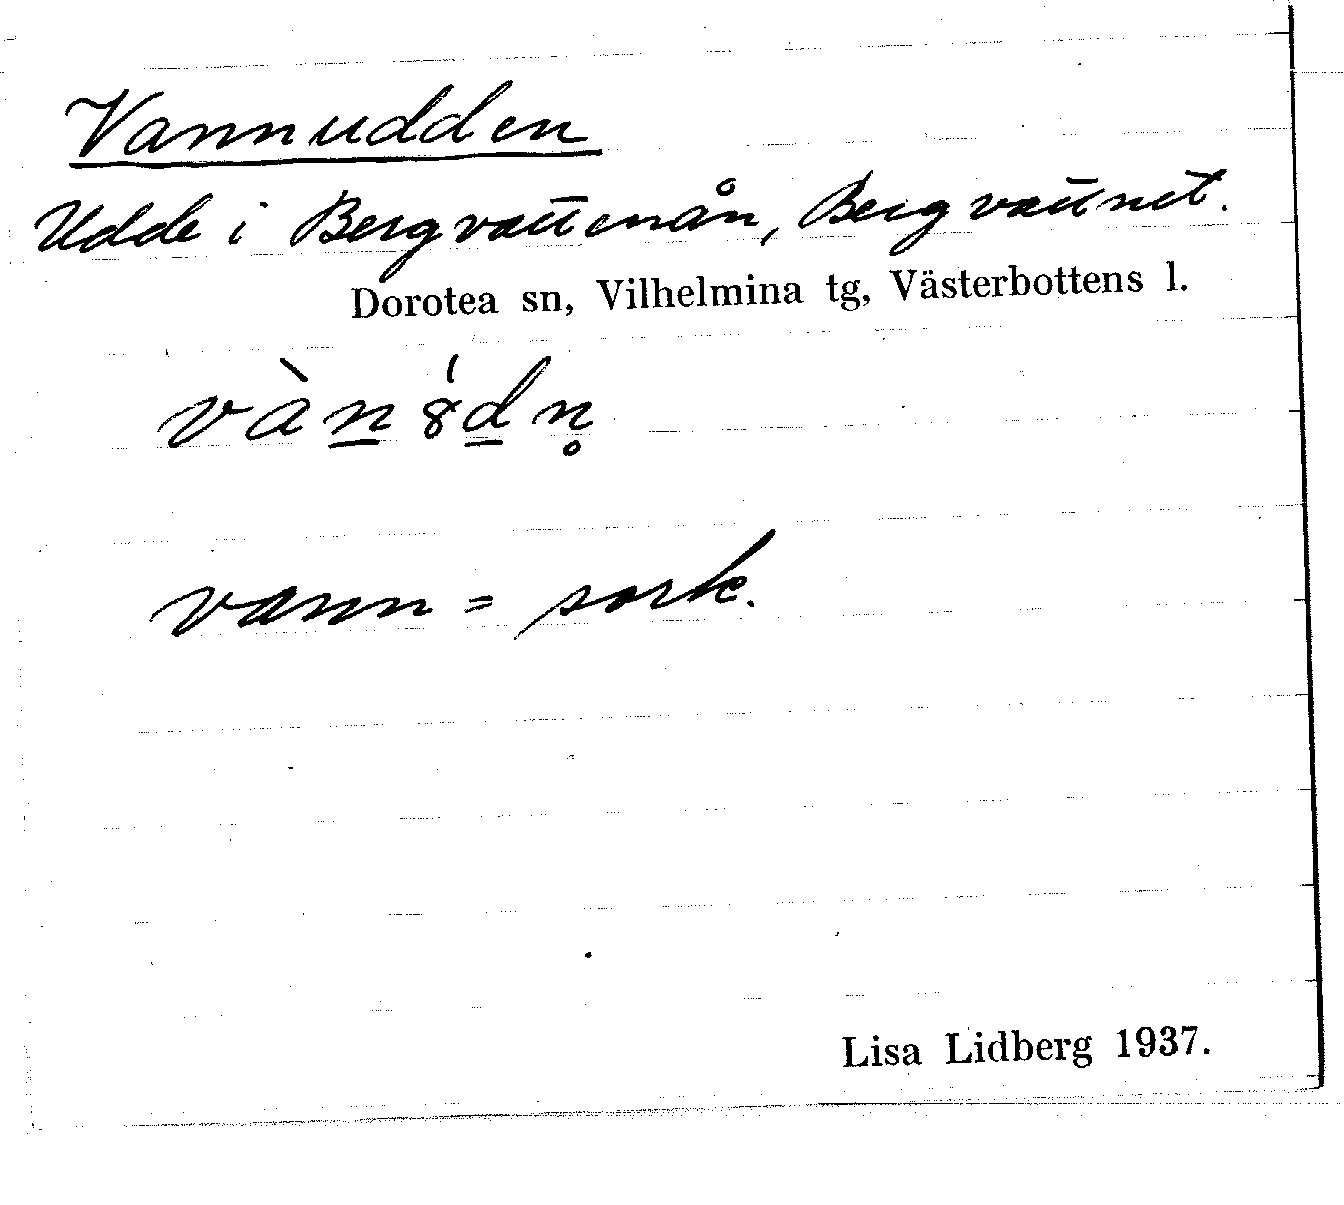 Vannudden
Udde i Bergvattenån, Bergvattnet.
Dorotea sn, Vilhelmina tg, Västerbottens l.
vàn̲ 8́d̲n̥
vann = sork.
Lisa Lidberg 1937.